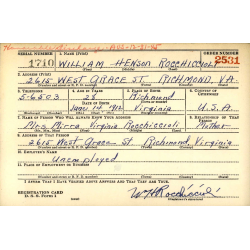 SERIAL NUMBER 1. NAME (Print) ORDER NUMBER
1710 WILLIAM HENSON ROCCHICCIOLI 2531
2. ADDRESS (Print)
2615 WEST GRACE ST. RICHMOND, VA.
3. TELEPHONE 4. AGE IN YEARS 5. PLACE OF BIRTH 6. COUNTRY OF CITIZENSHIP
5-6503 28 Richmond
June 14, 1912 Virginia U.S.A.
7. NAME OF PERSON WHO WILL ALWAYS KNOW YOUR ADDRESS 8. RELATIONSHIP OF THAT PERSON
Mrs. Mirra Virginia Rocchiccioli Mother
9. ADDRESS OF THAT PERSON
2615 West Grace St. Richmond, Virginia
10. EMPLOYER'S NAME
Unemployed
11. PLACE OF EMPLOYMENT OR BUSINESS
I AFFIRM THAT I HAVE VERIFIED ABOVE ANSWERS AND THAT THEY ARE TRUE.
REGISTRATION CARD
D. S. S. Form 1
W H Rocchiccioli